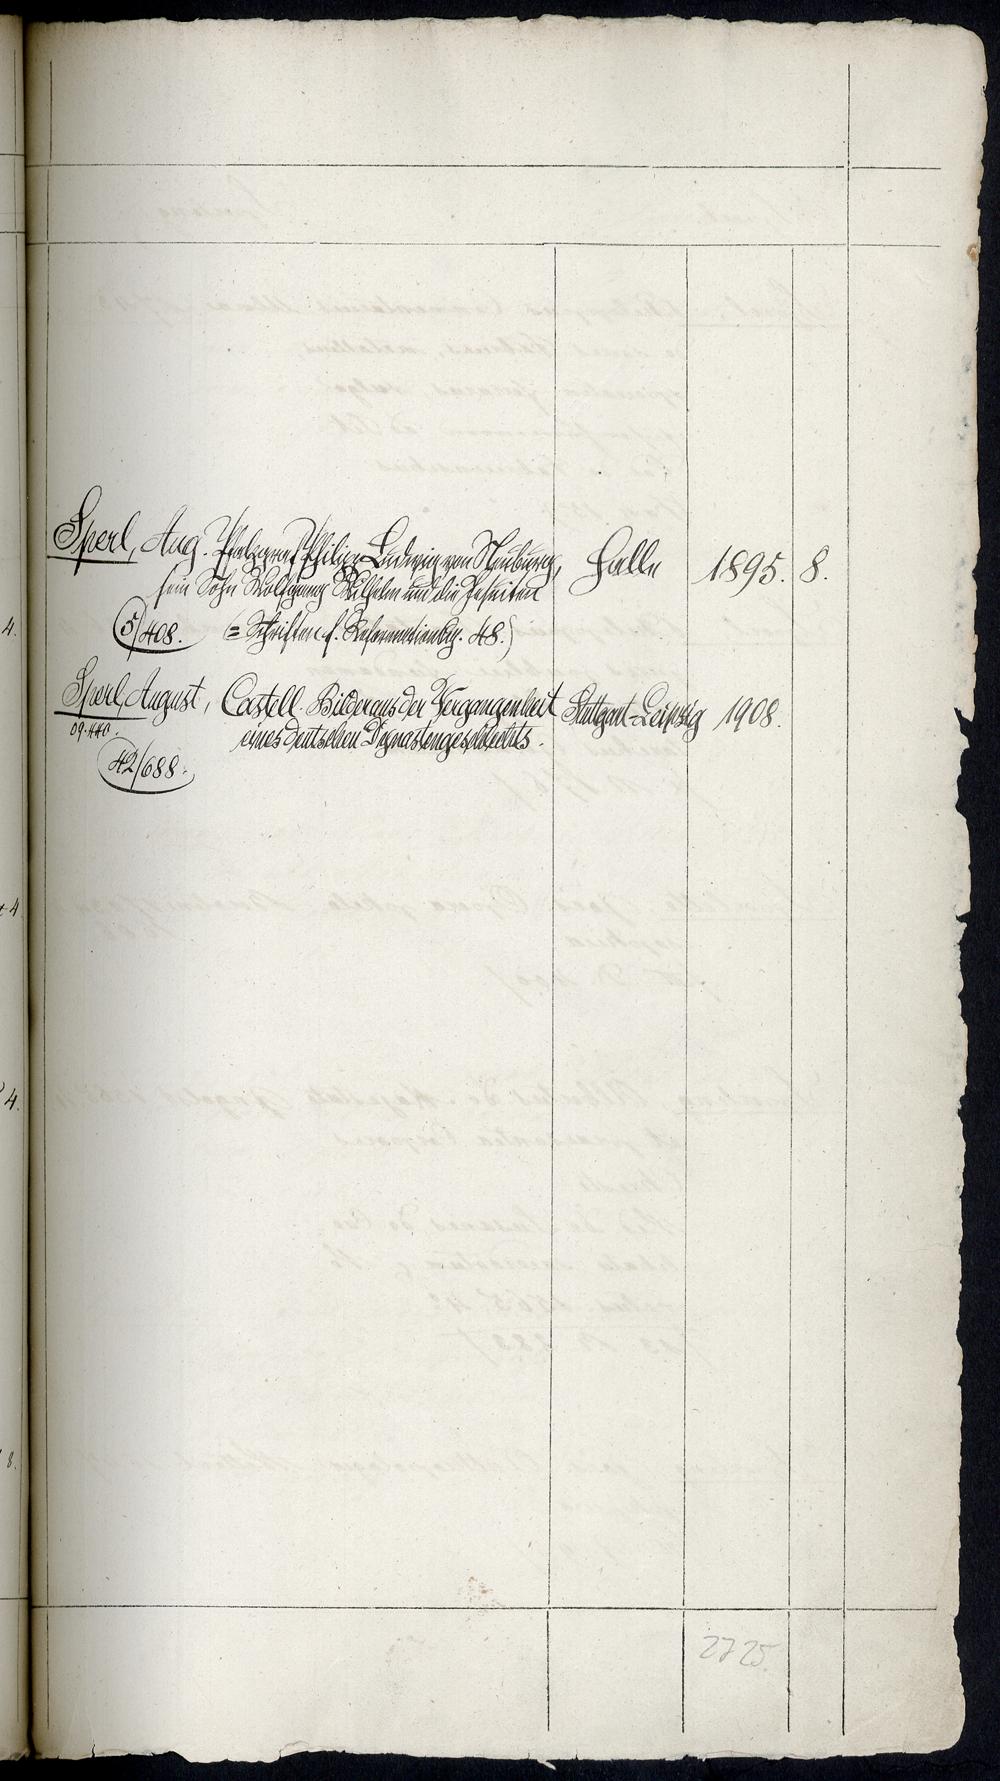 Sperl, Aug. Pfalzgraf Philipp Ludwig von Neuburg, Halle 1895. 8.
sein Sohn Wolfgang Wilhelm und die Jesuiten
5/408. (= Schriften f. Reformationsg. 48.)
Sperl, August, Castell. Bilder aus der Vergangenheit Stuttgart-Leipzig 1908.
09.440. eines deutschen Dynastengeschlechts.
42/688.
2725.